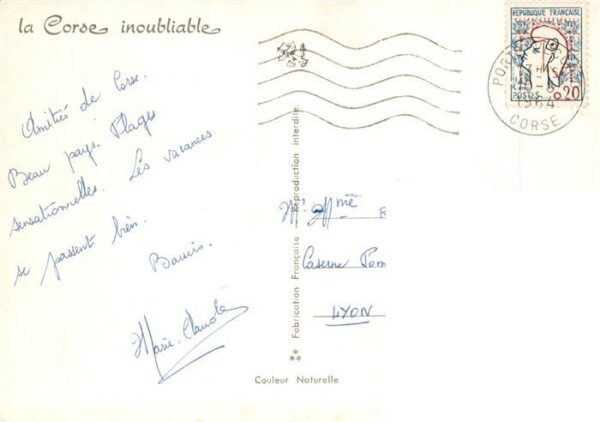 la Corse inoubliable
Amitiés de Corse.
Beau pays. Plages
sensationnelles. Les vacances
se passent bien.
Baisers.
Marie-Claude
Fabrication Française Reproduction interdite.
Couleur Naturelle
RÉPUBLIQUE FRANÇAISE
POSTES 0,20
POR
1964
CORSE
M. Mme R
Caserne Pom
LYON